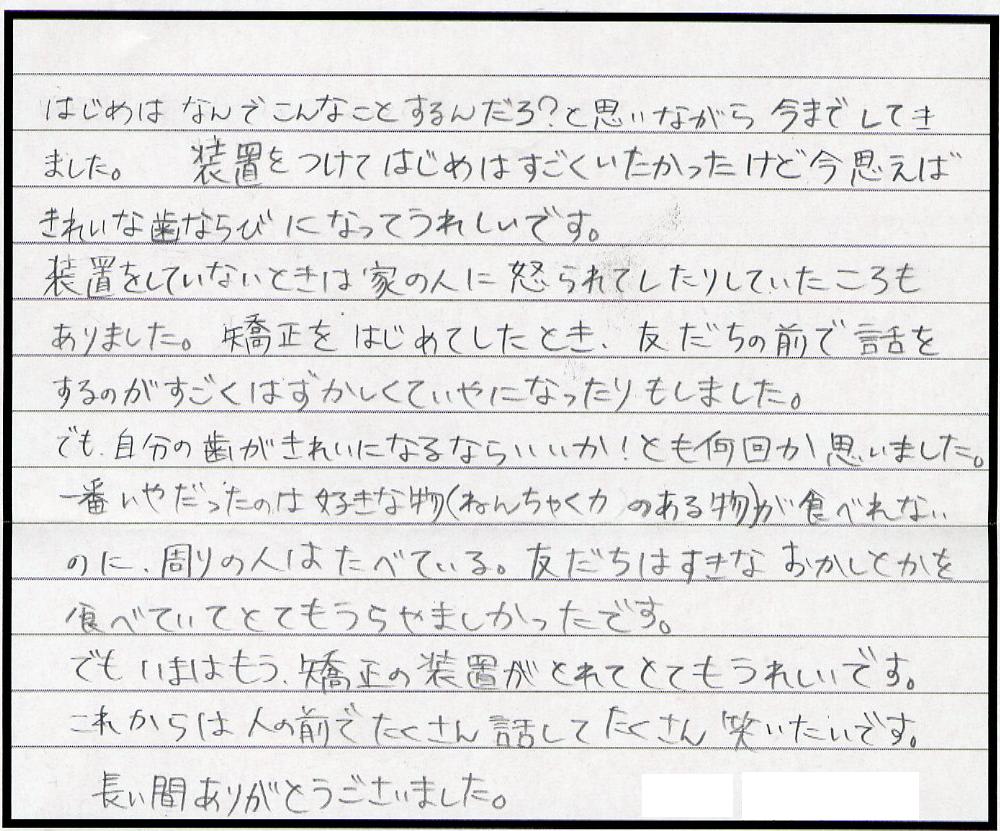 はじめは なんでこんなことするんだろ?と思いながら 今までしてき
ました。 装置をつけてはじめはすごくいたかったけど今思えば
きれいな歯ならびになってうれしいです。
装置をしていないときは家の人に怒られてしたりしていたころも
ありました。矯正をはじめてしたとき、友だちの前で話を
するのがすごくはずかしくていやになったりもしました。
でも、自分の歯がきれいになるならいいか!とも何回か思いました。
一番いやだったのは好きな物(ねんちゃく力のある物)が食べれない
のに、周りの人はたべている。友だちはすきなおかしとかを
食べていてとてもうらやましかったです。
でもいまはもう、矯正の装置がとれてとてもうれしいです。
これからは人の前でたくさん話してたくさん笑いたいです。
長い間ありがとうございました。